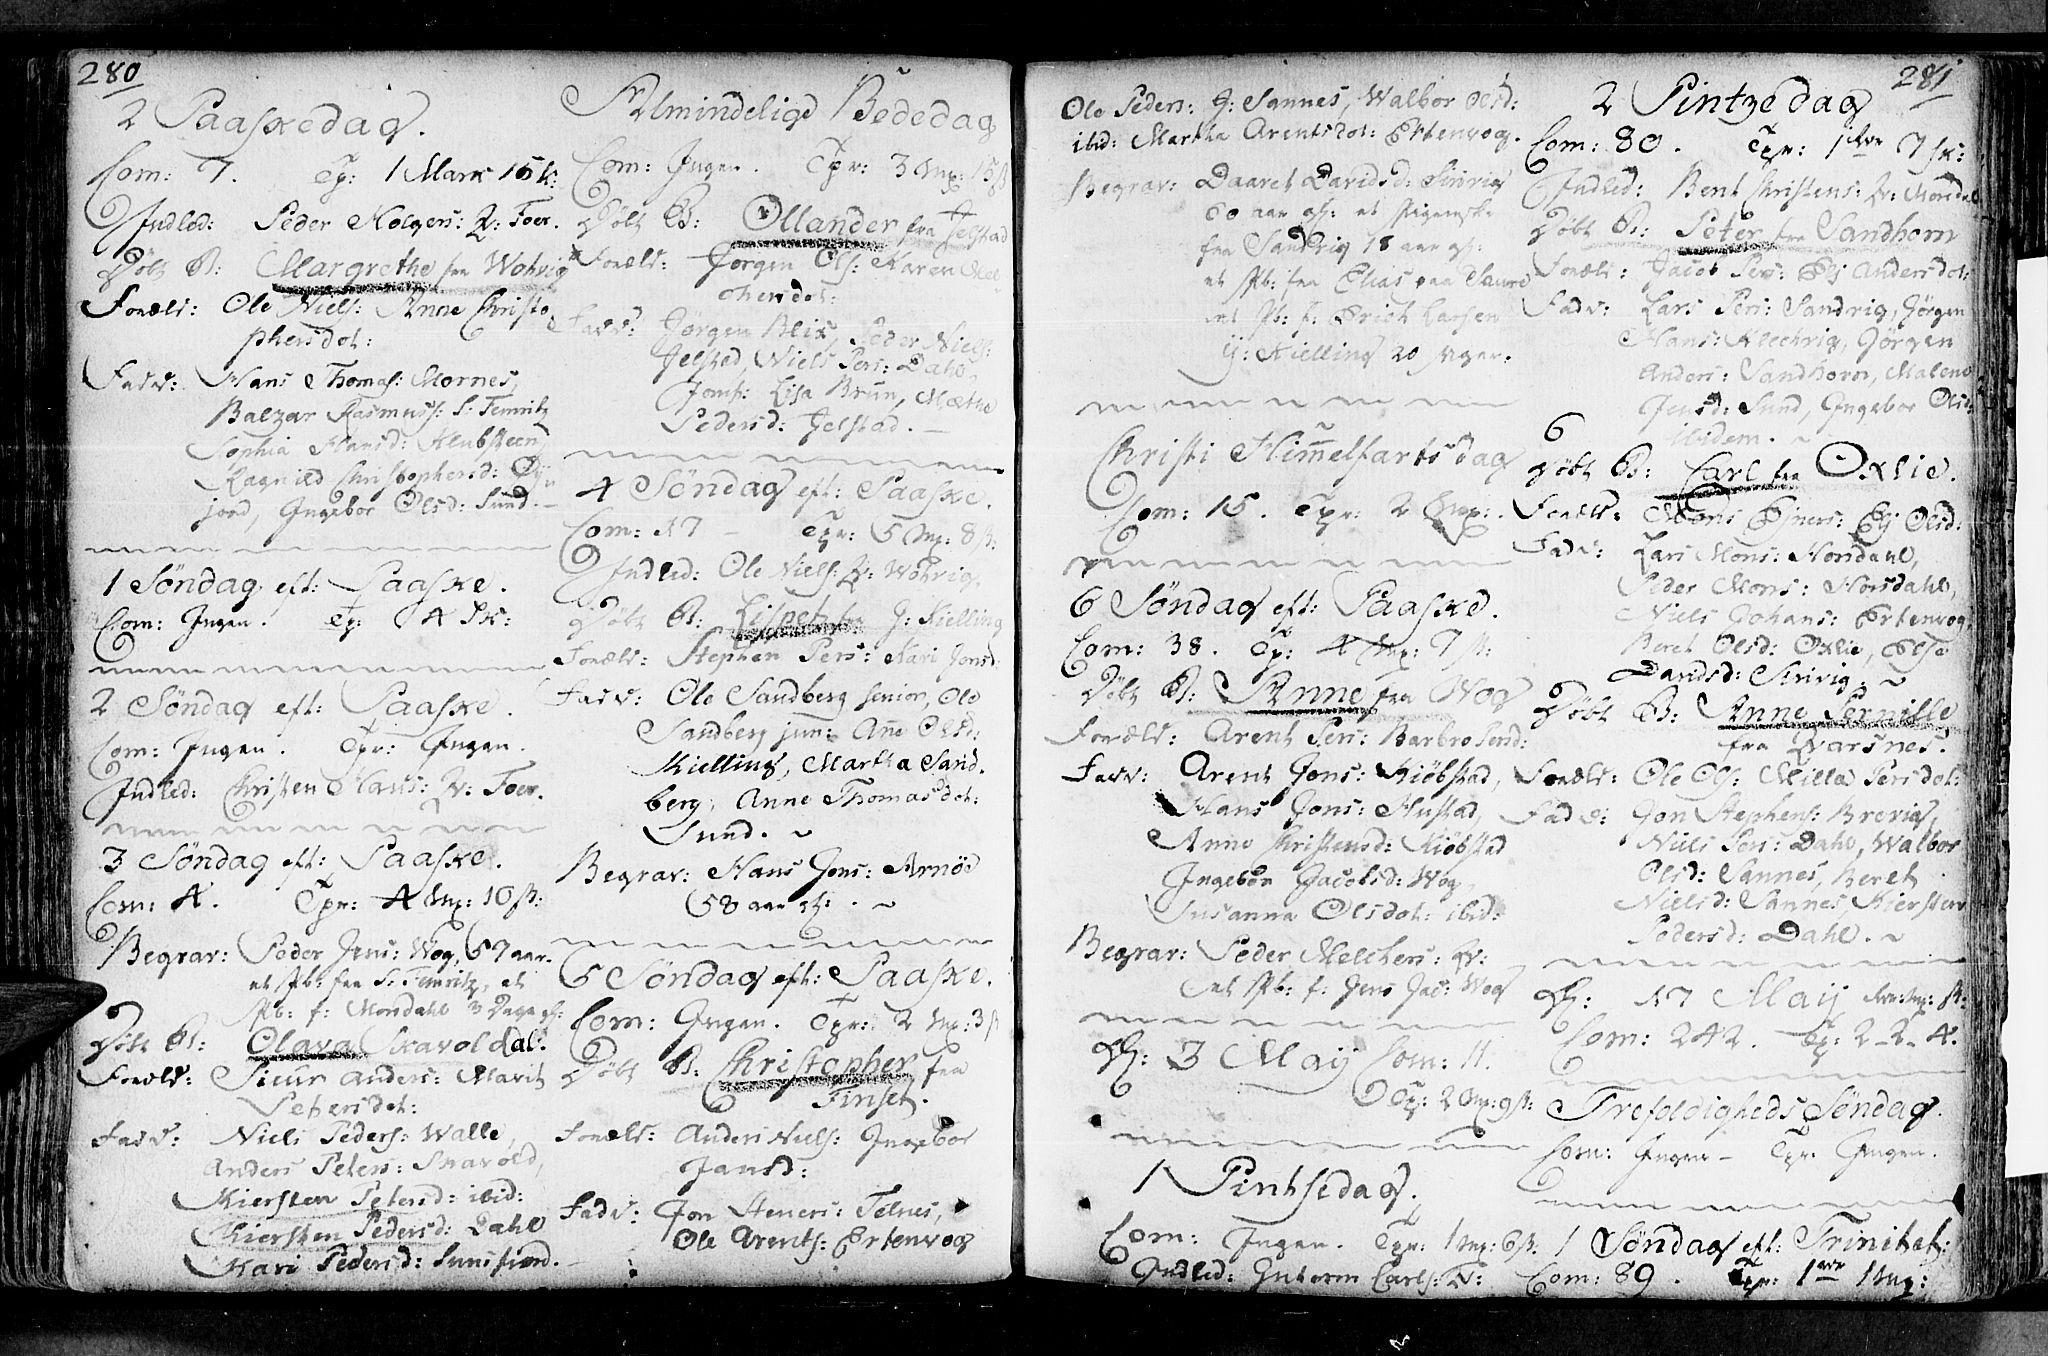 280
2 Paaskedag.
Com: 7. Tp: 1 Mark 15 sk:
Indled: Peder Holgers: Q: Foer.
Døbt B: Margrethe fra Wohrig
Foræld: Ole Niels: Anne Christo
phersdot:
Fadd: Hans Thomas: Mornes,
Balzar Rasmuss: S: Temritz
Sophia Hansd: Klubsteen,
Ragnild Christophersd: Øyn
jord, Ingebor Olsd: Sund. –
1 Søndag eft: Paaske.
Com: Ingen. Tp: 4 Sk:
2 Søndag eft: Paaske.
Com: Ingen. Tpr: Ingen.
Indled: Christen Hans: Q: Foer.
3 Søndag eft: Paaske.
Com: 4. Tpr: 4 Mp: 10 ß:
Begrav: Peder Jens: Wog, 57 aar.
et Pb: fra S: Temritz, et
Pb: f: Mordahl 3 Dage gl:
Døbt B: Olava Skavoldal:
Foræld: Sivur Anders: Marit
Petersdot:
Fadd: Niels Peders: Walle,
Anders Peters: Skavold,
Kiersten Petersd: ibid:
Kiersten Pedersd: Dahl
Kari Pedersd: Sunsfiord. –
Almindelige Bededag
Com: Ingen. Tpr: 3 Mp: 15 ß
Døbt B: Ollander fra Jelstad
Foræld: Jørgen Ols: Karen Mel
chersdot:
Fadd: Jørgen Blix, Peder Niels:
Jelstad, Niels Pers: Dahl,
Jomf: Lisa Brun, Mætha
Pedersd: Jelstad. –
4 Søndag eft: Paaske.
Com: 17 – Tpr: 5 Mp: 8 ß:
Indled: Ole Niels: Q: Wohrig.
Døbt B: Lispeth fra J: Kielling
Foræld: Stephen Pers: Kari Jonsd:
Fadd: Ole Sandberg senior, Ole
Sandberg jun: Anne Olsd:
Kielling, Martha Sand
berg, Anne Thomasdot:
Sund. ~
Begrav: Hans Jons: Arnøe
58 aar gl: . ~
5 Søndag eft: Paaske.
Com: Ingen. Tpr: 2 Mp: 3 ß
Døbt B: Christopher fra
Finset.
Foræld: Anders Niels: Ingebor
Jansd:
Fadd: Jon Steners: Telnes,
Ole Arents: Ertenvog
281
Ole Peders: J: Sannes, Walbor Olsd:
ibid: Martha Arentsdot: Ertenvog.
Begrav: Daaret Davidsd: Sinrig
60 aar gl: et Pigensk:
fra Sandvig 18 aar gl:
et Pb: fra Elias paa
et Pb: f: Erich Larsen
Y: Kielling 20 uger.
Christi Himmelfarts dag
Com: 15. Tpr: 2 Mp:
6 Søndag eft: Paaske.
Com: 38. Tp: 4 Mp: 7 ß:
Døbt B: Anne fra Wog
Foræld: Arent Pers: Barbro
Fadd: Arent Jons: Kiøbstad,
Hans Jons: Hustad,
Anne Christensd: Kiøbstad
Ingebor Jacobsd: Wog,
Susanna Olsdot: ibid:
Begrav: Peder Melchers: Q:
et Pb: f: Jens Jac: Wog
D: 3 Maij Com: 11.
Tp: 2 Mp: 9 ß:
1 Pintsedag.
Com: Ingen. Tpr: 1 Mp: 6 ß:
Indled: Guterm Carls: Q:
2 Pintzedag
Com: 80. Tpr: 1 7 sk:
Indled: Bent Christens: Q: Mordal
Døbt B: Peter fra Sandhorn
Foræld: Jacob Pers: Elj Andersdot:
Fadd: Lars Pers: Sandvig, Jørgen
Hans: Klechvig, Jørgen
Anders: Sandhorn, Malene
Jensd: Sund, Ingebor Olsd:
ibidem. ~
Døbt B: Carl fra Oxlie.
Foræld: Mons Ejners: Elj Olsd:
Fadd: Lars Mons: Nordahl,
Peder Mons: Nordahl,
Niels Johans: Ertenvog,
Beret Olsd: Oxlie, Else
Davidsd: Sinvig. ~
Døbt B: Anne Pernille
fra Qvarsnes.
Foræld: Ole Ols: Milla Persdot:
Fadd: Jon Stephens: Brevig,
Niels Pers: Dahl, Walbor
Olsd: Sannes, Beret
Nielsd: Sannes, Kiersten
Pedersd: Dahl. ~
D: 17 Maij
Com: 242. Tp: 2 – 2 – 4.
Trefoldigheds Søndag.
Com: Ingen – Tpr: Ingen.
1 Søndag eft: Trinitat:
Com: 89. Tpr: 1 1 Mp: